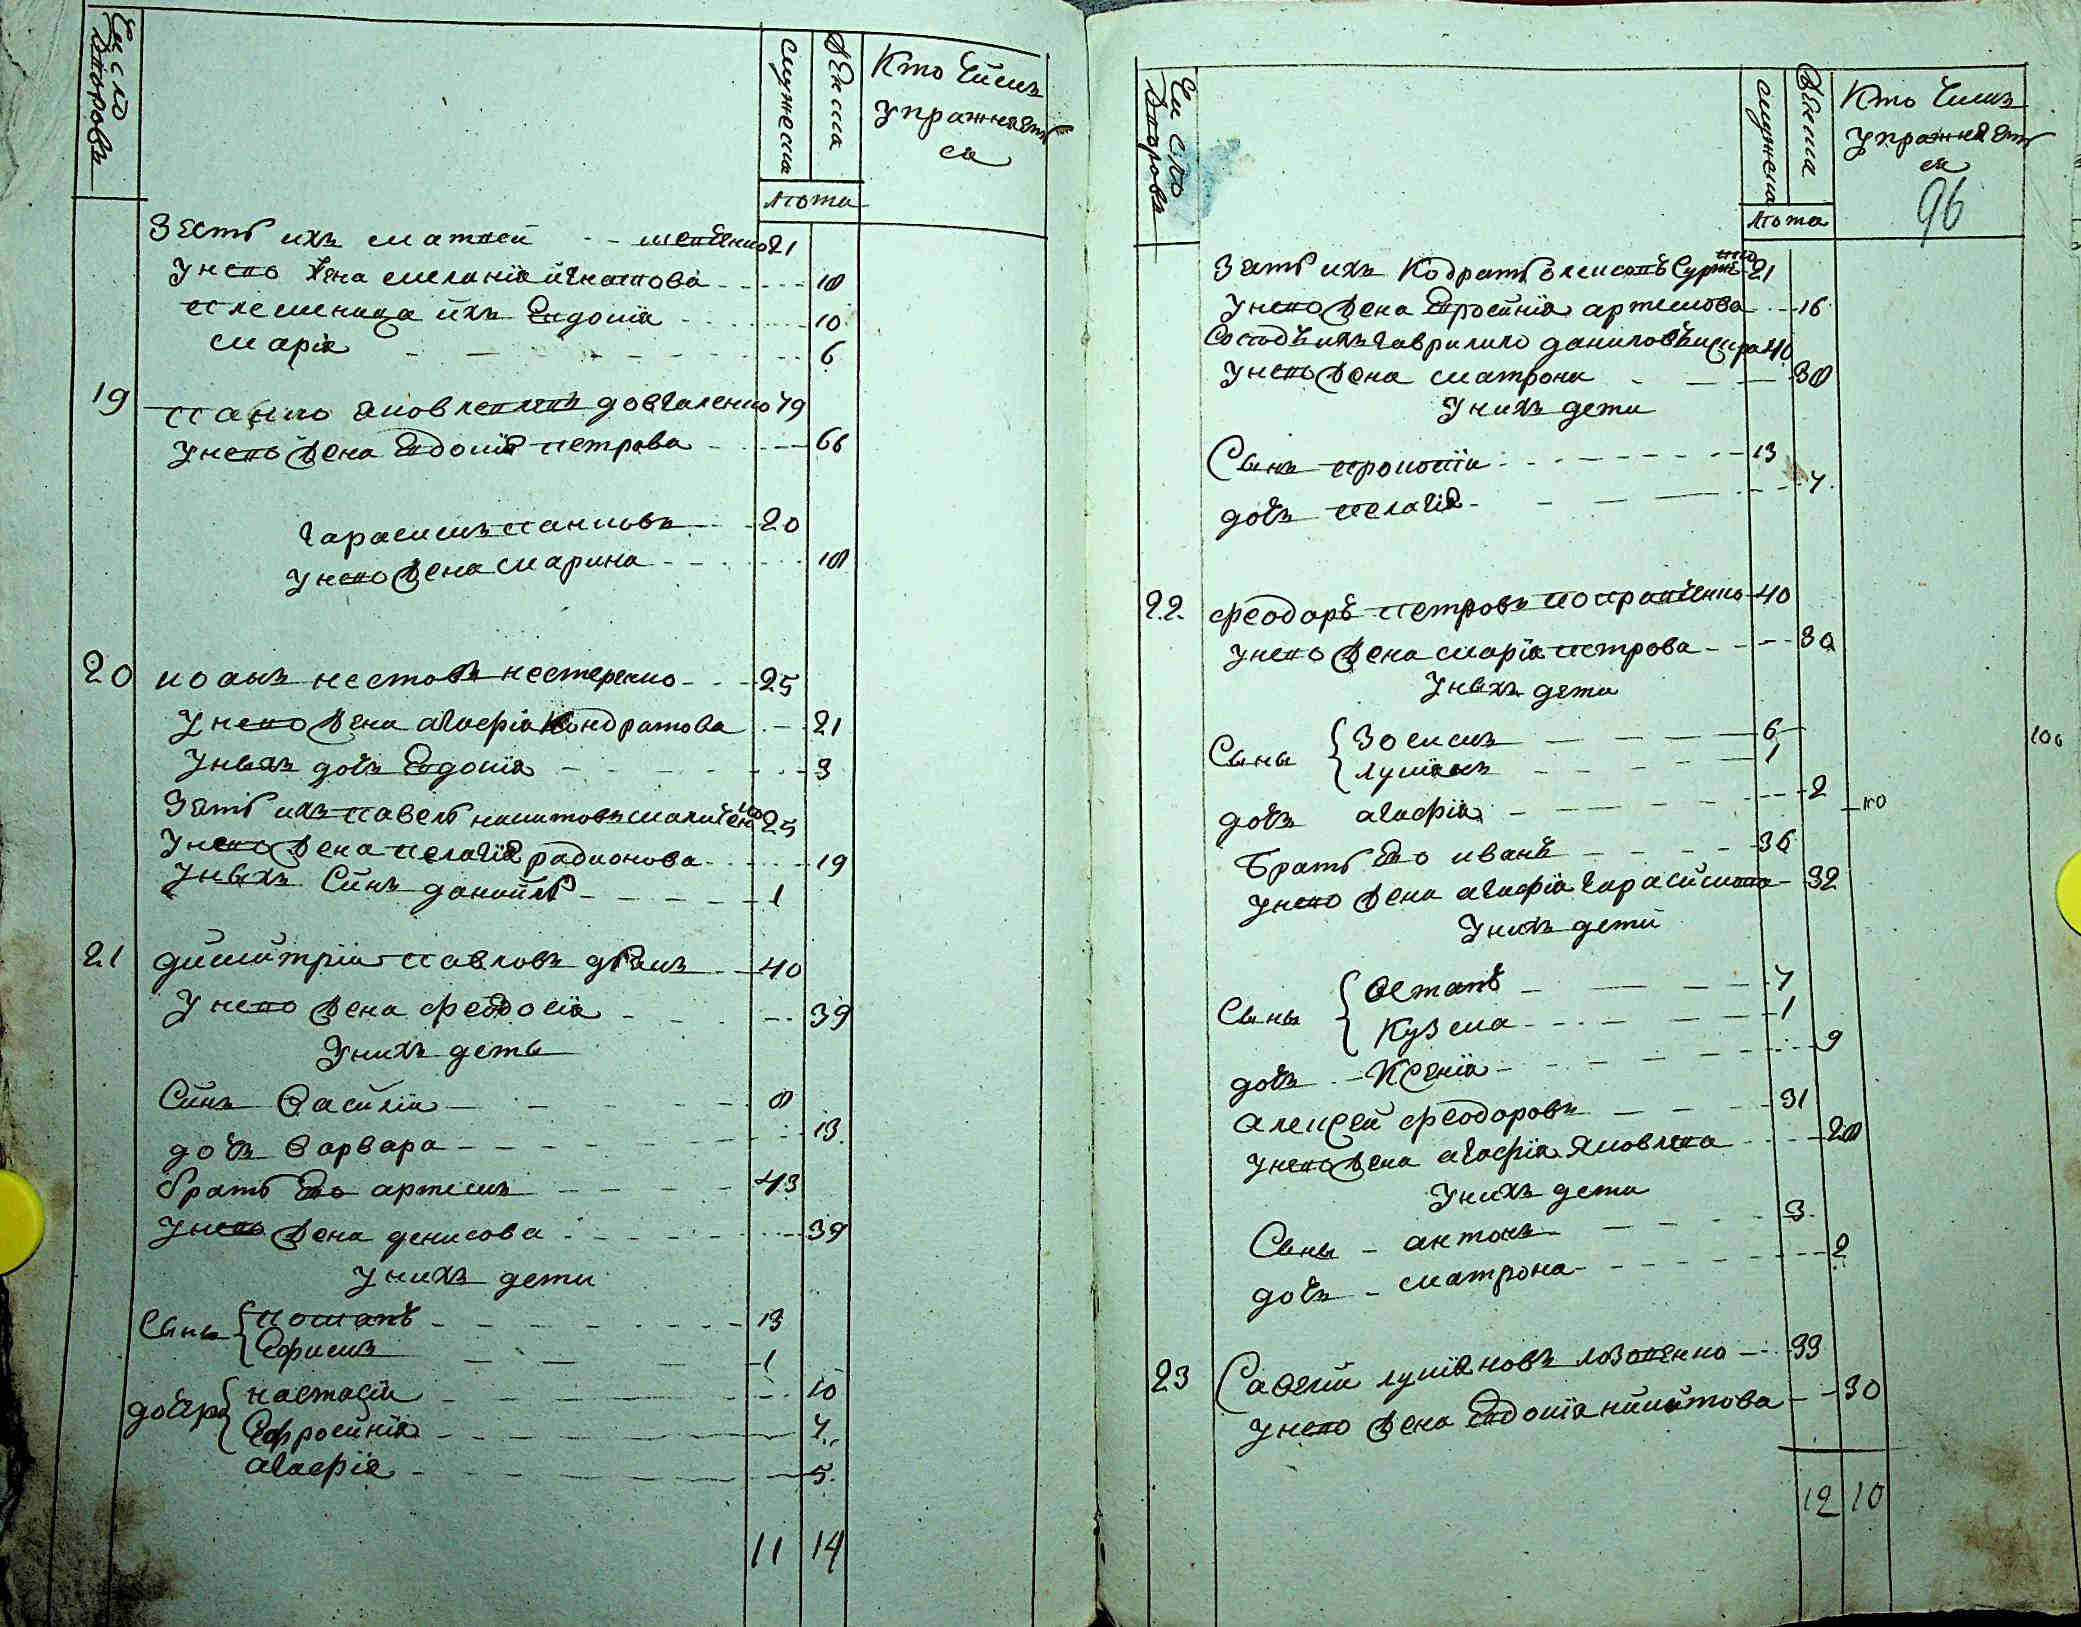 Число дворовъ
мужеска
женска
лѣта
Кто чимъ
упражняет
ся
Зять ихъ матвей -- шевченко 21
У него жена мелания игнатова 18
племеница ихъ Евдокия 10
мария 6
19 панко яковлевичъ довгаленко 79
У него жена Евдокия петрова 66
Гарасимъ панковъ 20
У него жена марина 18
20 иоанъ нестовъ нестеренко 25
У него жена агафия Кондратова 21
У ныхъ дочъ Евдокия 3
Зять ихъ павелъ никитовъ 25
У него жена пелагия радионова 19
У ныхъ Синъ данийлъ 1
21 димитрий павловъ 40
У него жена феодосия 39
У нихъ деты
Синъ Василий 8
дочъ Варвара 13
братъ Его артемъ 43
У него жена денисова 39
У нихъ дети
Сыны { потапъ 13
Ефимъ 1
дочери { настасия 10
Ефросиния 7
агафия 5
11 14
Число дворовъ
мужеска
женска
лѣта
Кто чимъ
упражняет
ся
96
Зять ихъ Кодратъ 21
У него жена Ефросиния артемова 16
Соседъ ихъ гаврилило даниловъ 40
У него жена матрона 38
У нихъ дети
Сынъ прокопий 13
дочъ пелагия 7
22 феодоръ петровъ 40
У него жена мария петрова 30
У ныхъ дети
Сыны { Зосимъ 6
лукиянъ 1
дочъ агафия 2
100
Братъ Его иванъ 36
У него жена агафия гарасимова 32
У нихъ дети
Сыны { Остапъ 7
Кузема 1
дочъ - Ксения 9
Алексей феодоровъ 31
У него жена агафия Яковлева 28
У нихъ дети
Сыны - антонъ 3
дочъ - матрона 2
23 Савелий лукияновъ лозовенко 33
У него жена Евдокия никитова 30
12 10